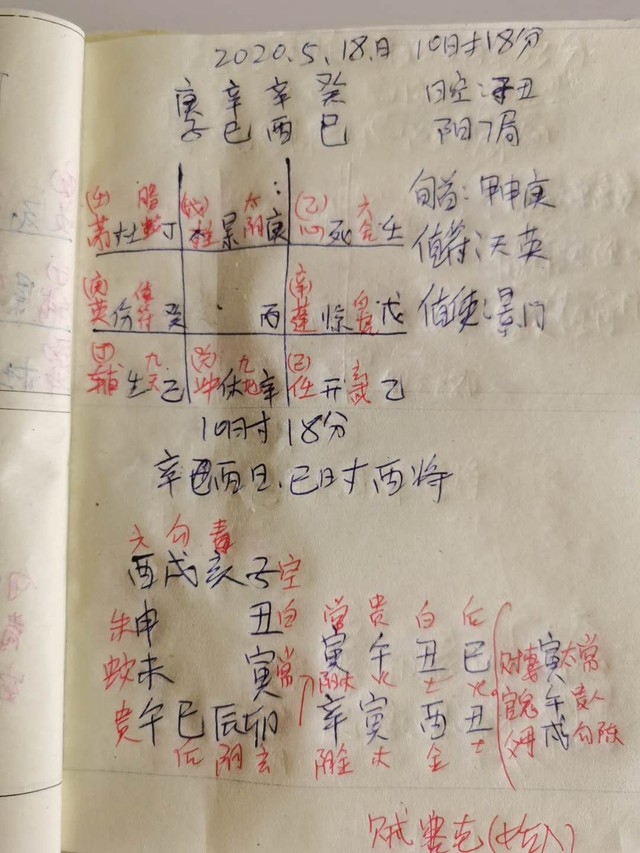 2020.5.18.日 10时18分
庚 辛 辛 癸 日空:子丑
子 巳 酉 巳 阳7局
旬首:甲申庚
值符:天英
值使:景门
(壬) 腾 (戊) 太 (乙) 六
芮 杜 蛇 丁 柱 景 阴 庚 心 死 合 壬
(庚) 值 (辛) 白
英 伤 符 癸 丙 蓬 惊 虎 戊
(丁) 九 (癸) 九 (己) 玄
辅 生 天 己 冲 休 地 辛 任 开 武 乙
10时18分
辛酉日、巳时酉将
六 勾 青
酉 戌 亥 子 空
朱 申 丑 白 常 贵 白 后
蛇 未 寅 常 寅 午 丑 巳 财 寅 太常
阴木 火 土 火 官鬼 午 贵人
贵 午 巳 辰 卯 辛 寅 酉 丑 父母 戌 勾陈
后 阴 玄 阴金 木 金 土